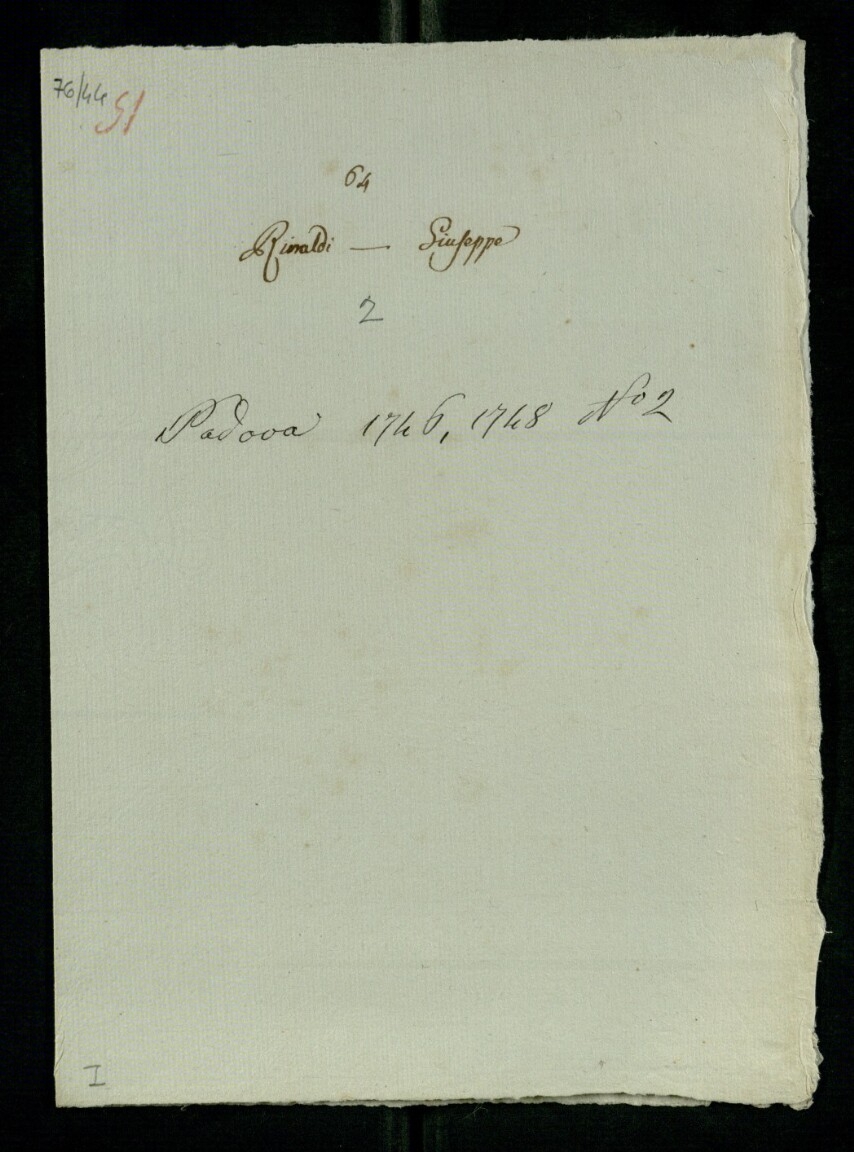 76/44
51
64
Rinaldi — Giuseppe
2
Padova 1746, 1748 No 2
I